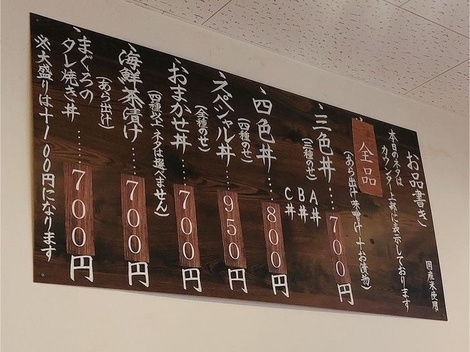 お品書き
国産米使用
本日のネタは
カウンター上部に表示しております
全品
(あら出汁味噌汁+お漬物)
三色丼
(三種のせ)
A丼
B丼
C丼
700円
四色丼
(四種のせ)
800円
スペシャル丼
(全種のせ)
950円
おまかせ丼
(四種以上 ネタは選べません)
700円
海鮮茶漬け
(あら出汁)
700円
まぐろの
タレ焼き丼
700円
※大盛りは+100円になります